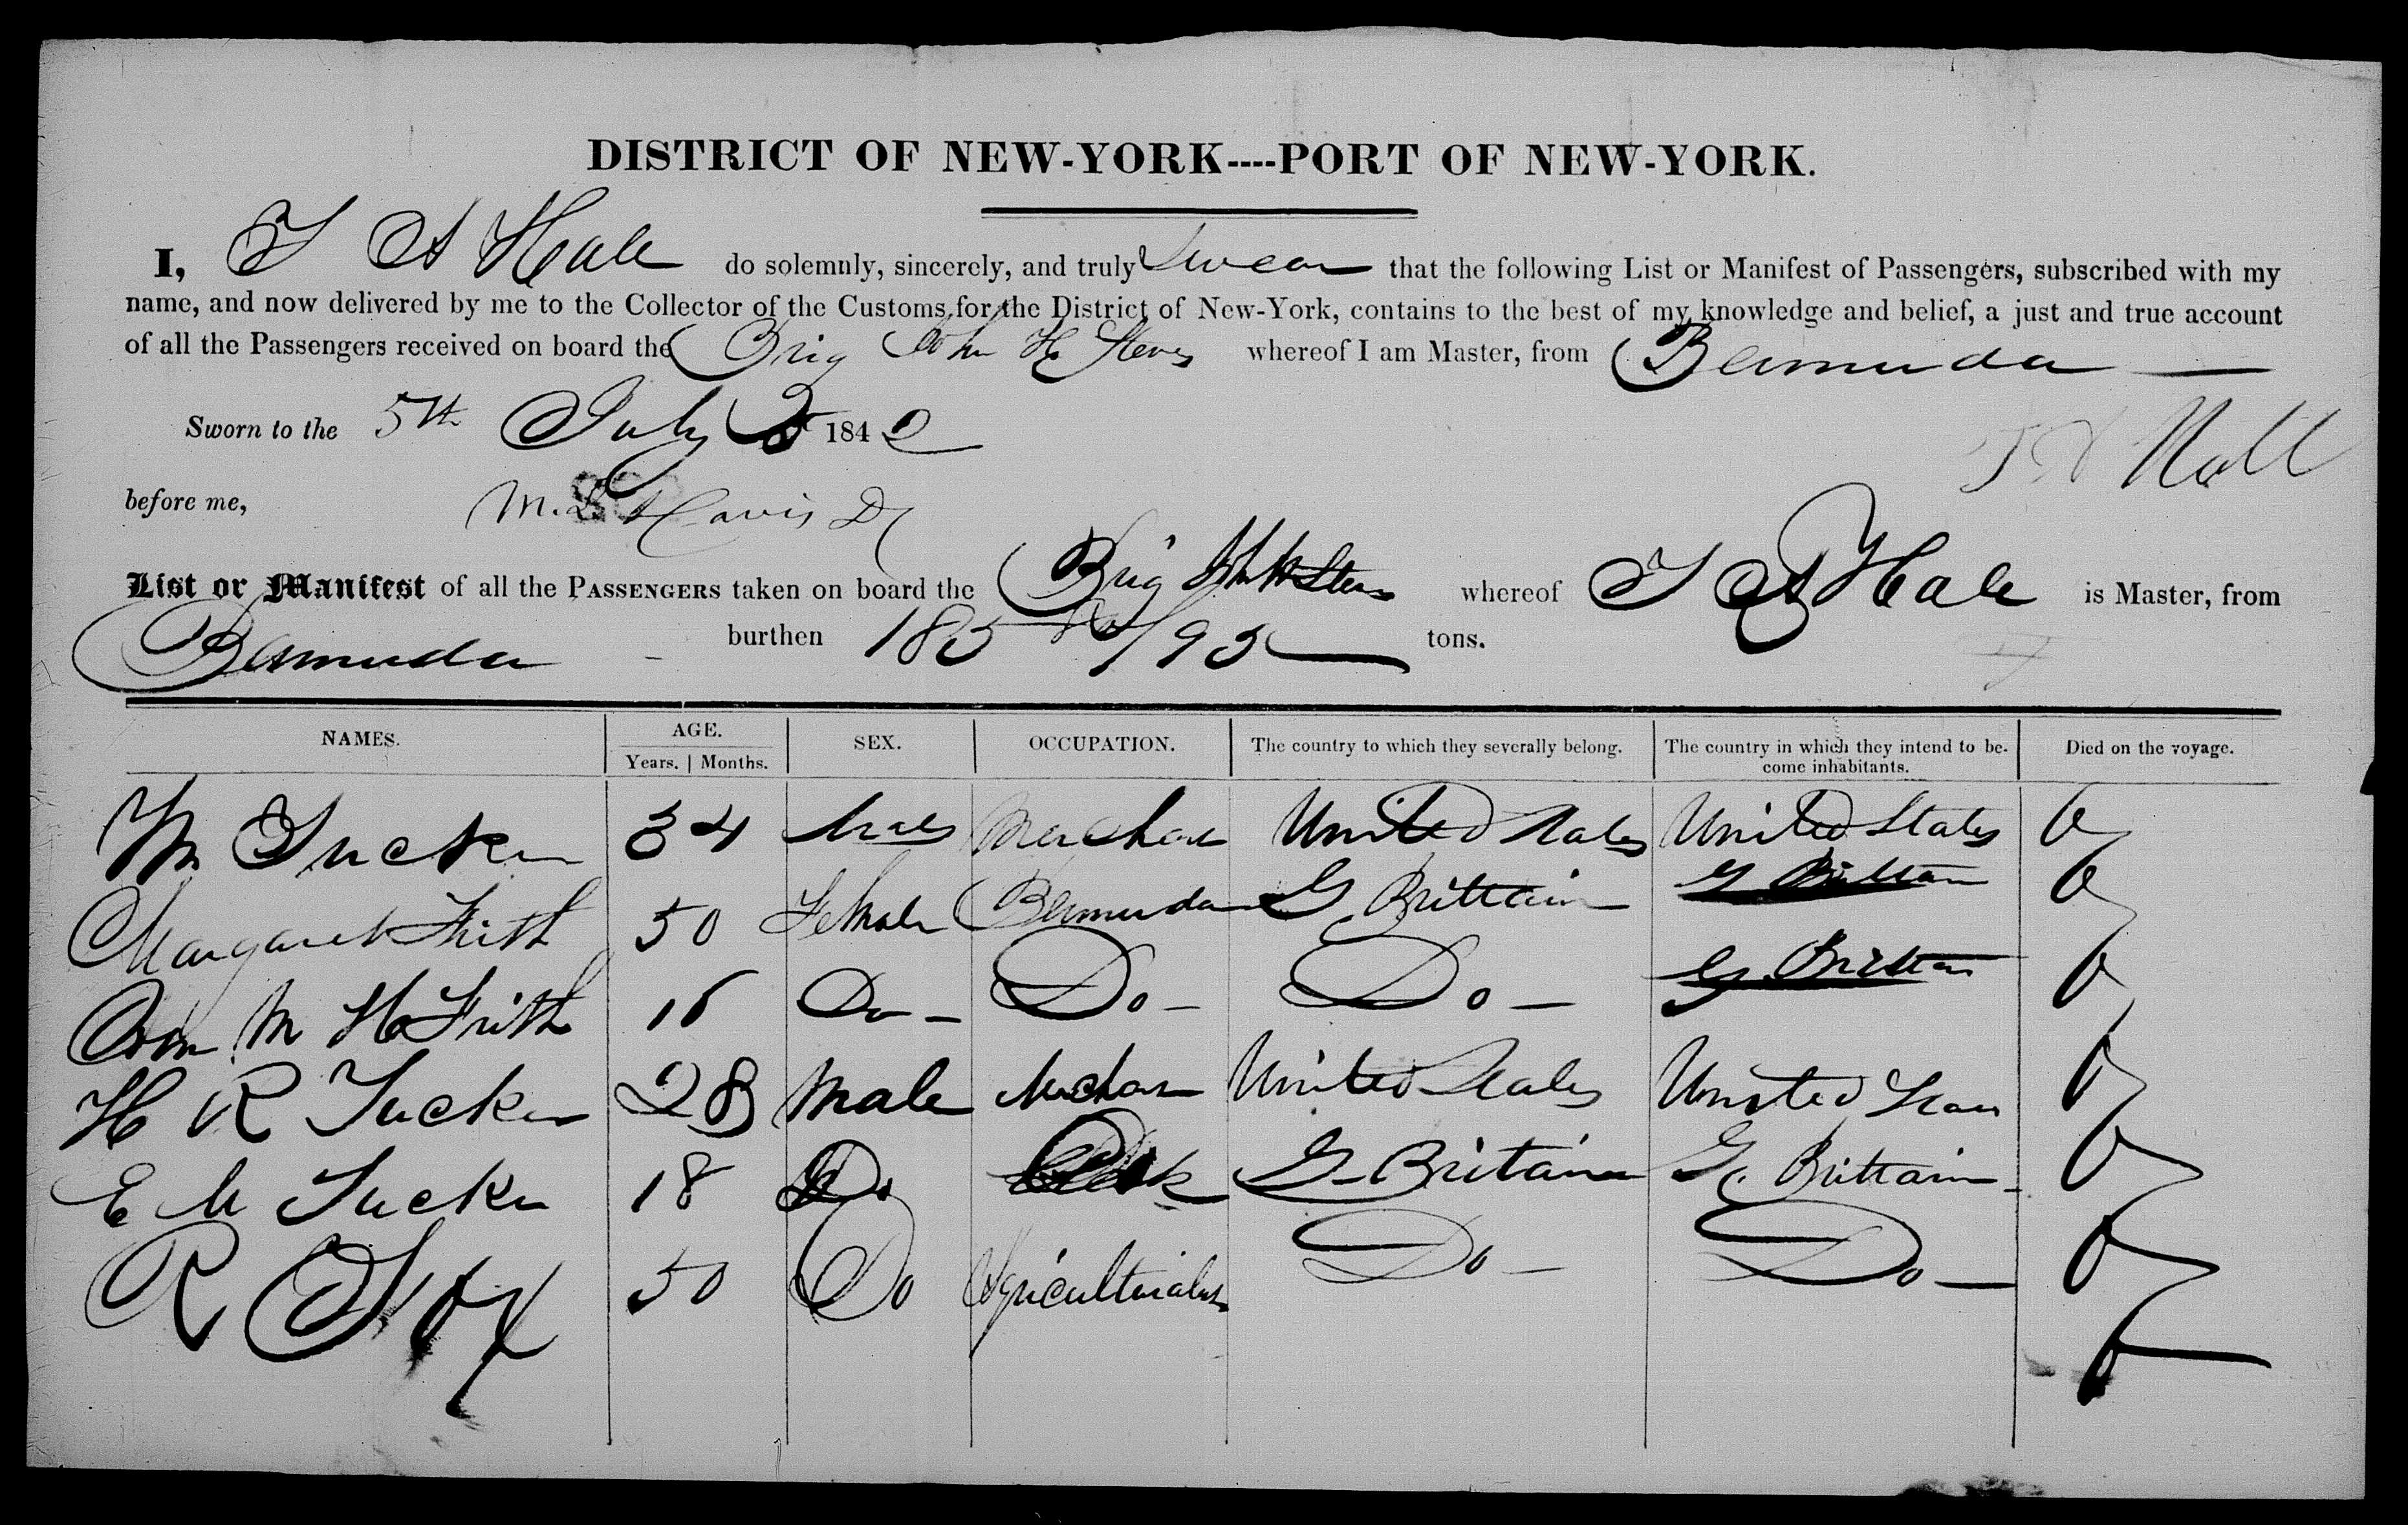 DISTRICT OF NEW-YORK----PORT OF NEW-YORK.
I, T A Hall do solemnly, sincerely, and truly Swear that the following List or Manifest of Passengers, subscribed with my
name, and now delivered by me to the Collector of the Customs for the District of New-York, contains to the best of my knowledge and belief, a just and true account
of all the Passengers received on board the Brig John H Stevens whereof I am Master, from Bermuda
Sworn to the 5th July 5 1842
T A Hall
before me, M. L. Davis
List or Manifest of all the PASSENGERS taken on board the Brig John H Stevens whereof T A Hall is Master, from
Bermuda burthen 185 /95 tons.
NAMES. AGE. SEX. OCCUPATION. The country to which they severally belong. The country in which they intend to be- Died on the voyage.
Years. | Months. come inhabitants.
Tucker 34 Male Merchant United States United States 0
Margaret Frith 50 Female Bermuda G Brittain G Brittain 0
Ann M H Frith 16 Do - Do - Do - G Brittain 0
H R Tucker 28 Male Merchant United States United States 0
E M Tucker 18 Do Clerk G Britain G. Brittain 0
R 50 Do Agriculturalist Do - Do - 0
0